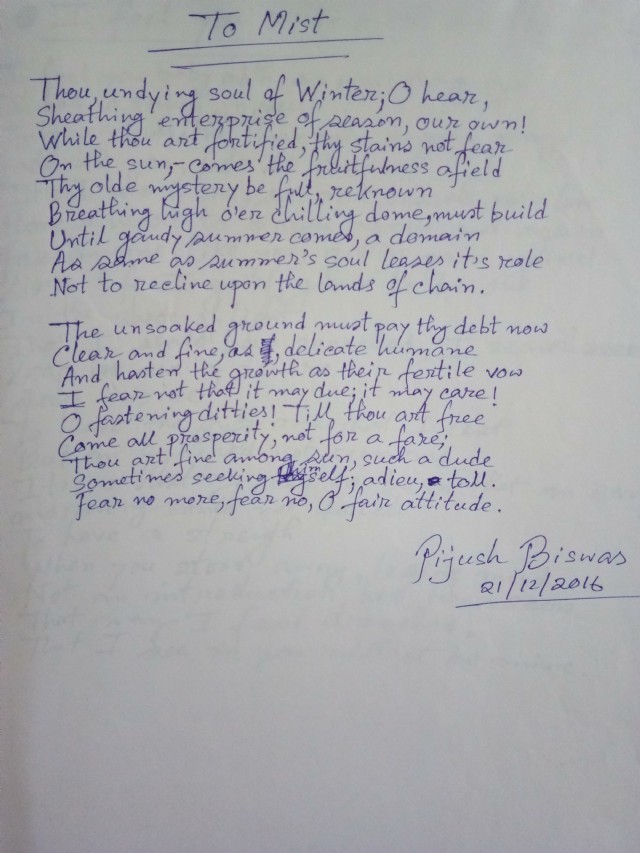 To Mist
Thou, undying soul of Winter; O hear,
Sheathing enterprise of season, our own!
While thou art fortified, thy stains not fear
On the sun,- comes the fruitfulness afield
Thy olde mystery be full, reknown
Breathing high o'er chilling dome, must build
Until gaudy summer comes, a domain
As same as summer's soul leases it's role
Not to recline upon the lands of chain.
The unsoaked ground must pay thy debt now
Clear and fine, as, delicate humane
And hasten the growth as their fertile vow
I fear not that it may due; it may care!
O fastening ditties! Till thou art free
Come all prosperity, not for a fare;
Thou art fine among sun, such a dude
Sometimes seeking self; adieu, toll.
Fear no more, fear no, O fair attitude.
Pijush Biswas
21/12/2016